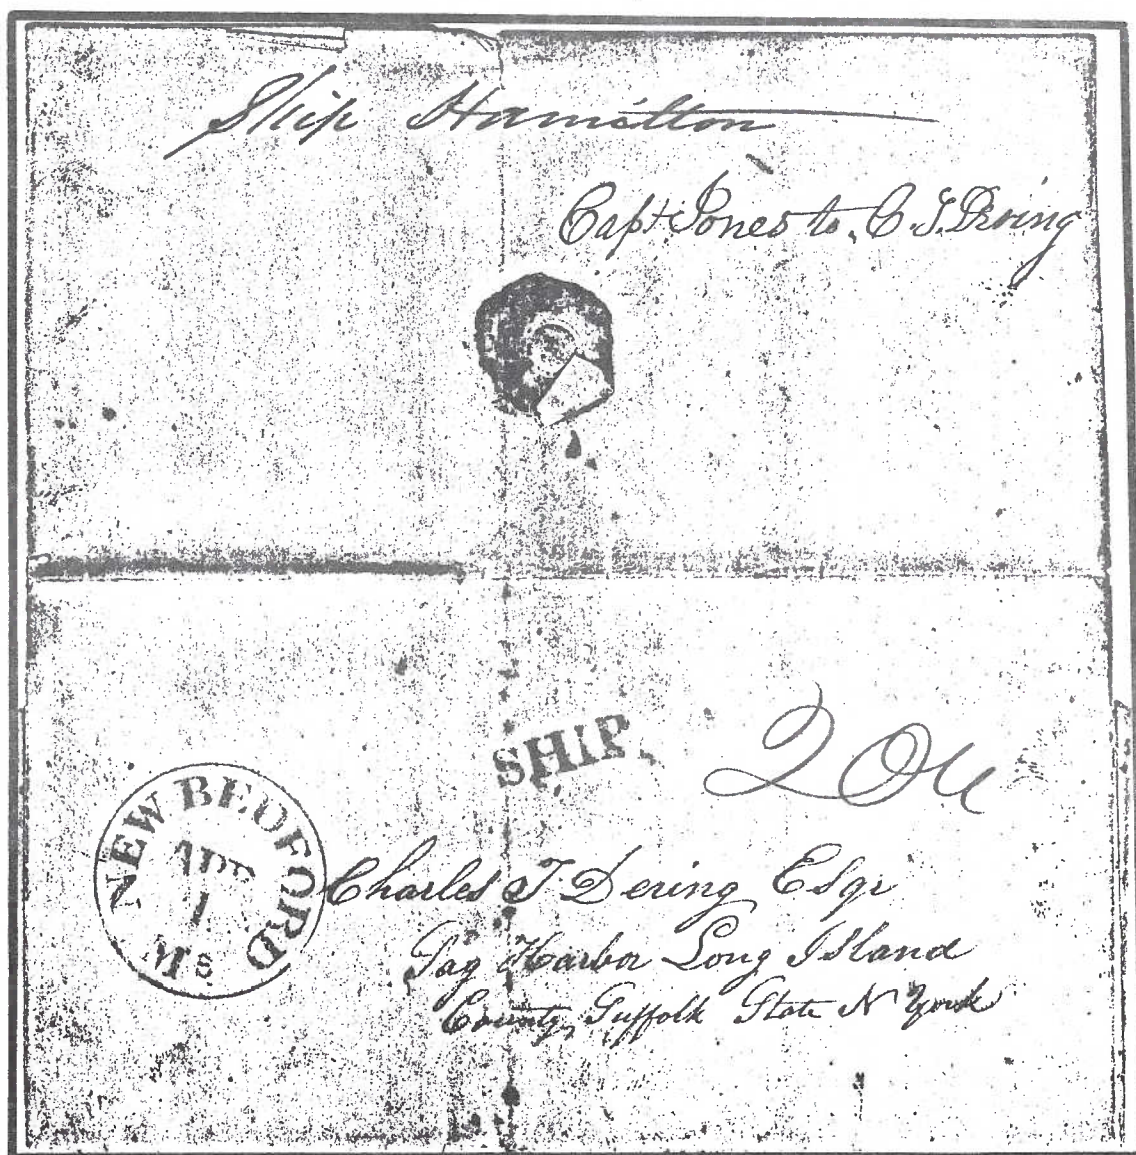 Ship Hamilton
Capt Jones to C. T. Dering
SHIP
NEW BEDFORD
APR
1
Ms
Charles T Dering Esqr
Sag Harbor Long Island
County Suffolk State N York